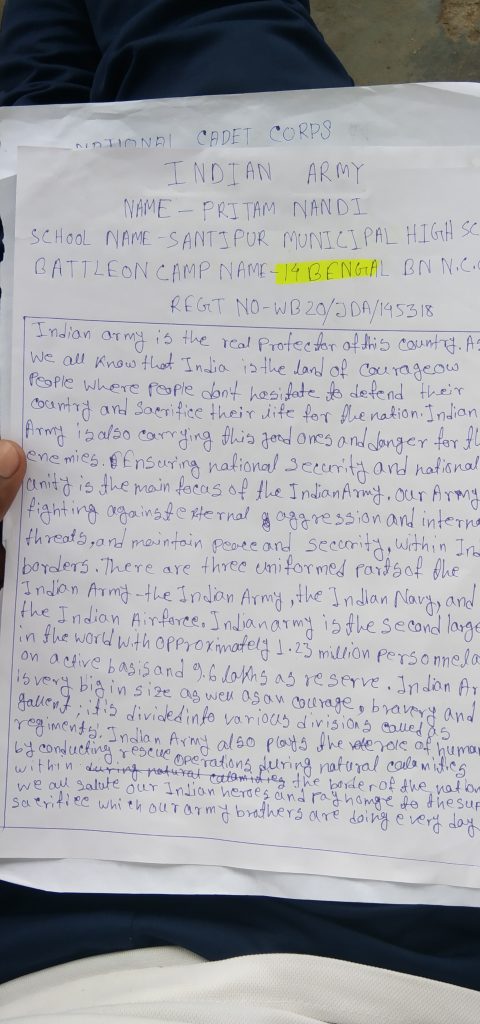 NATIONAL CADET CORPS
INDIAN ARMY
NAME - PRITAM NANDI
SCHOOL NAME - SANTIPUR MUNICIPAL HIGH SC
BATTLEON CAMP NAME - 14 BENGAL BN N.C.C
REGT NO - WB20/JDA/145318
Indian army is the real Protector of this country. As
We all Know that India is the land of courageow
People where People don't hesitate to defend their
country and Sacrifice their life for the nation. Indian
Army is also carrying this good ones and danger for th
enemies. Ensuring national security and national
unity is the main focus of the Indian Army. Our Army
fighting against external aggression and interna
threats, and maintain peace and security, within Ind
borders. There are three uniformed parts of the
Indian Army - the Indian Army, the Indian Navy, and
the Indian Airforce. Indian army is the second large
in the world with approximately 1.23 million personnel a
on active basis and 9.6 lakhs as reserve. Indian Ar
is very big in size as well as an courage, bravery and
gallent; it is divided into various divisions called as
regiments. Indian Army also plays the role of human
by conducting rescue operations during natural calamities
within during natural calamities the border of the nation
we all salute our Indian heroes and pay homge to the sup
sacrifice which our army brothers are doing every day